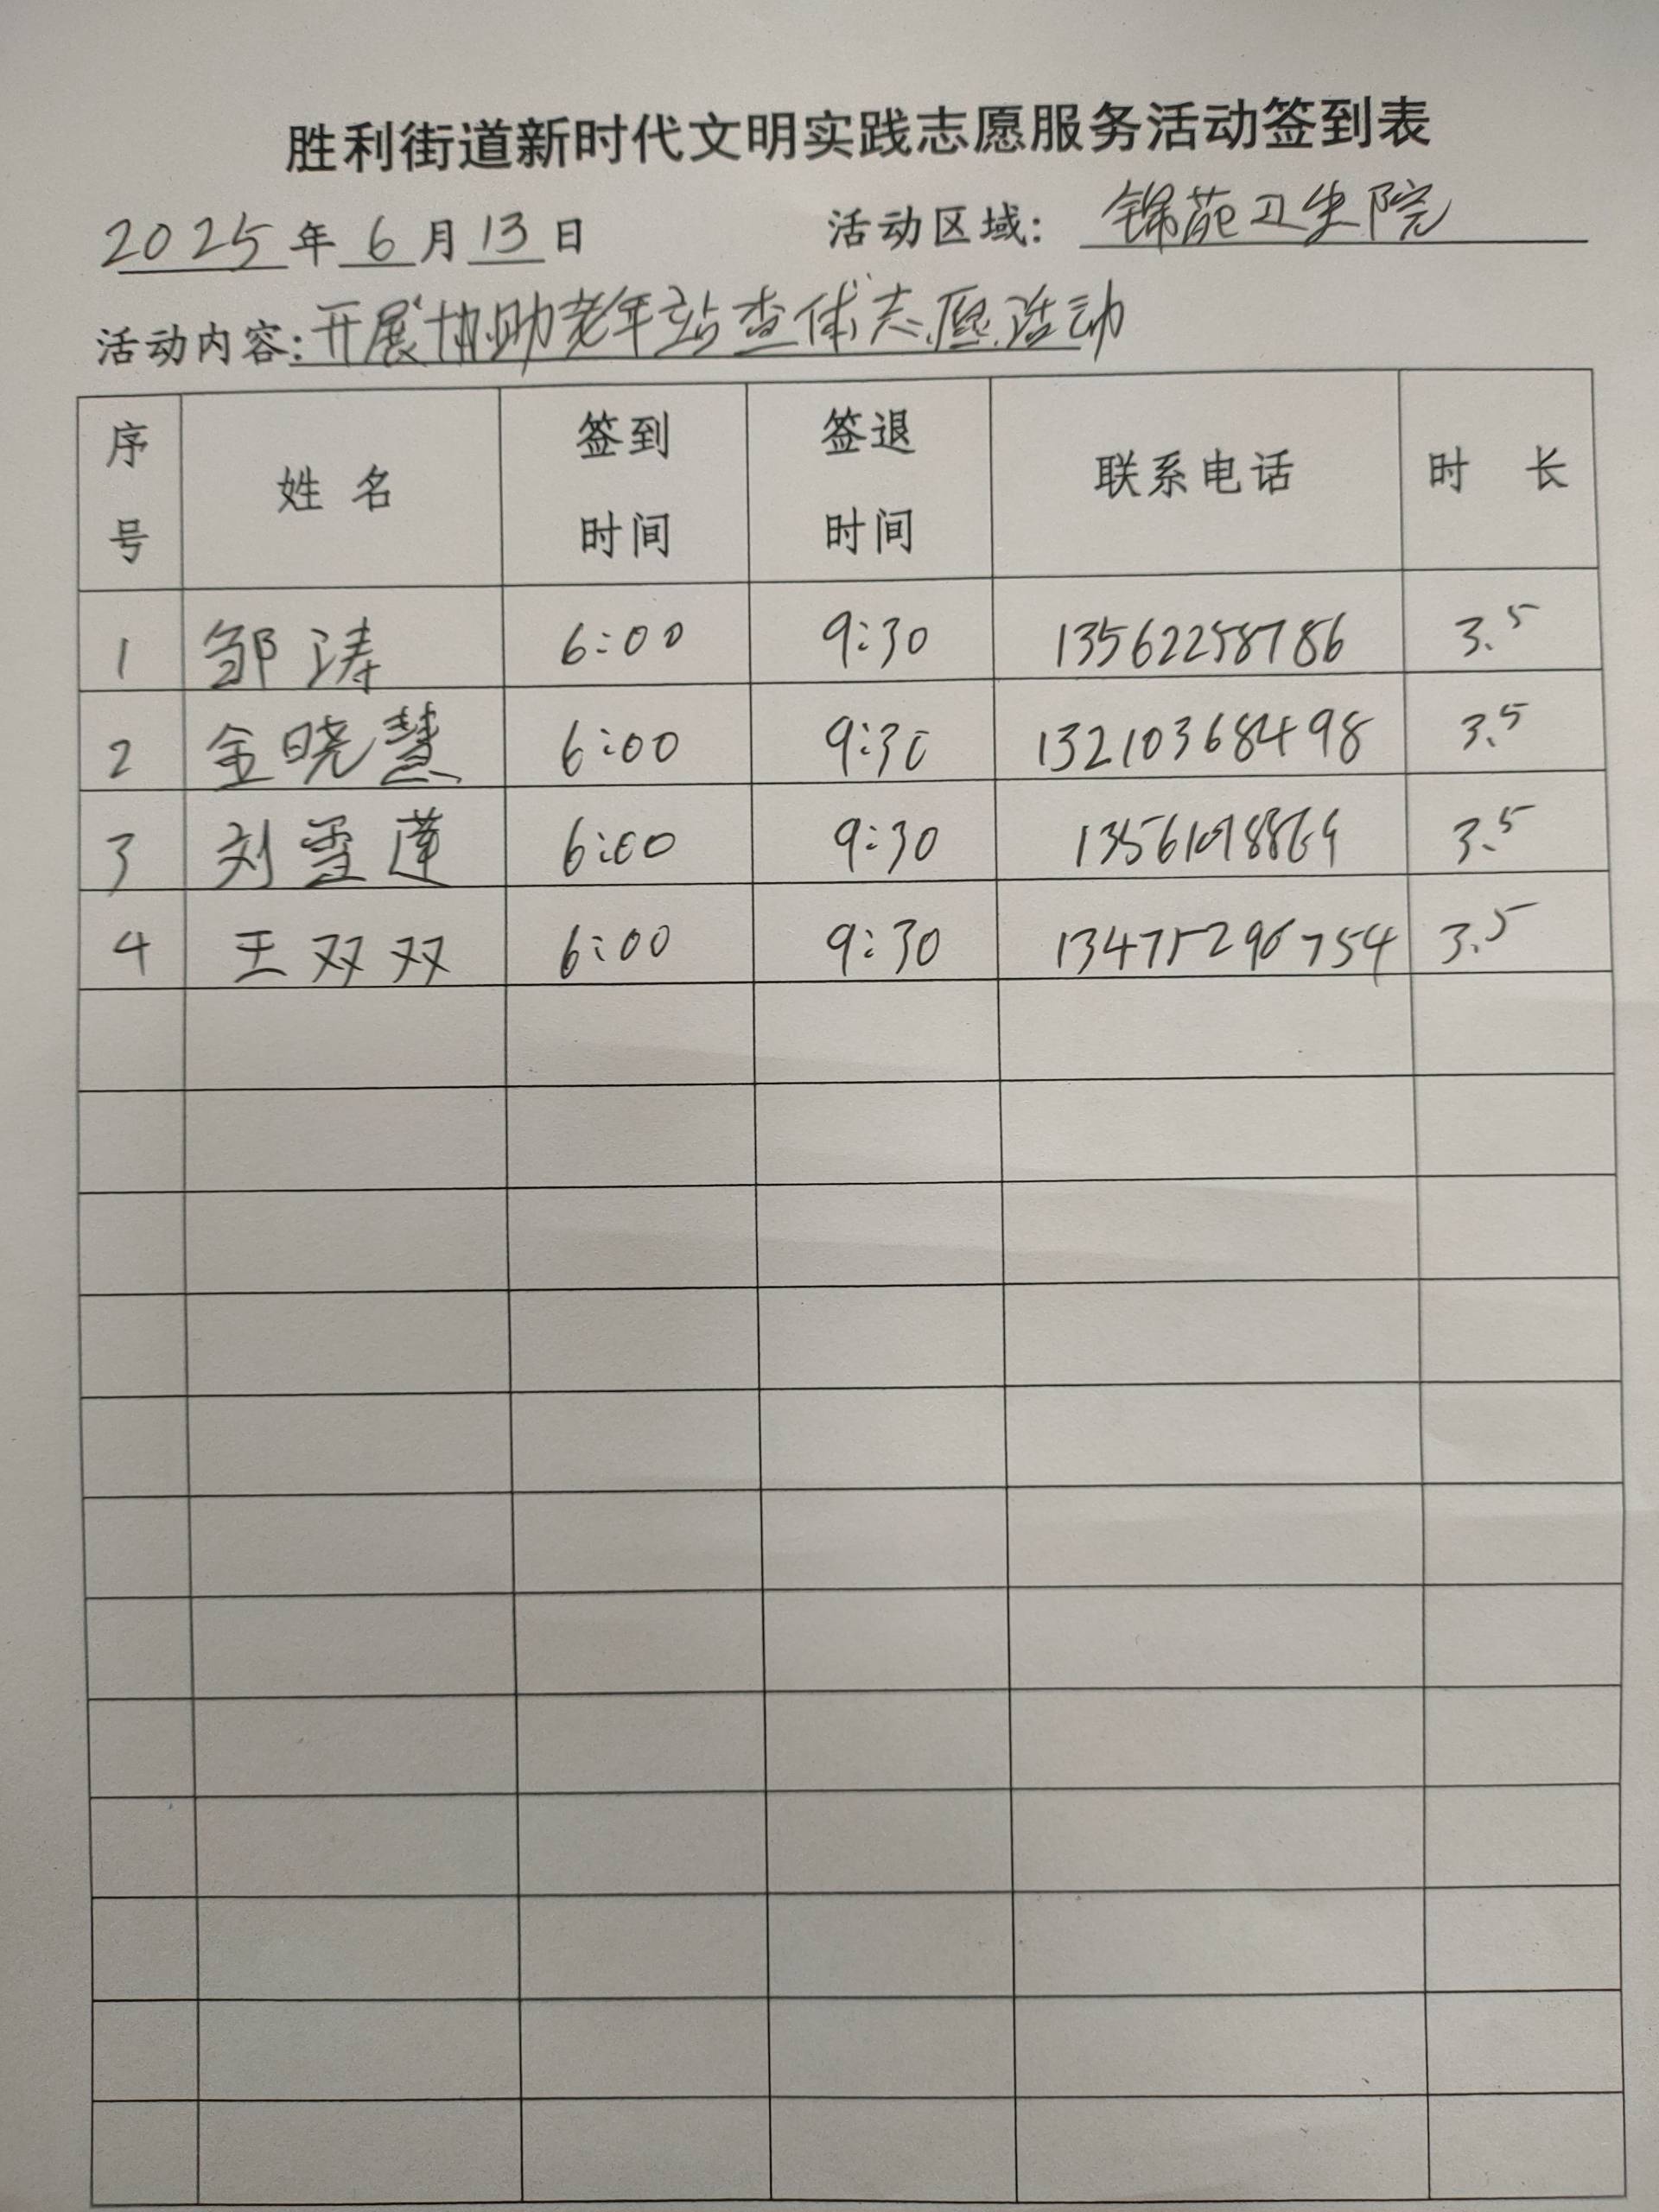 胜利街道新时代文明实践志愿服务活动签到表
2025年6月13日 活动区域：锦苑卫生院
活动内容：开展协助老年站查体志愿活动
序号 姓名 签到时间 签退时间 联系电话 时长
1 邹涛 6:00 9:30 13562258786 3.5
2 金晓慧 6:00 9:30 13210368498 3.5
3 刘雪莲 6:00 9:30 3.5
4 王双双 6:00 9:30 13475296754 3.5